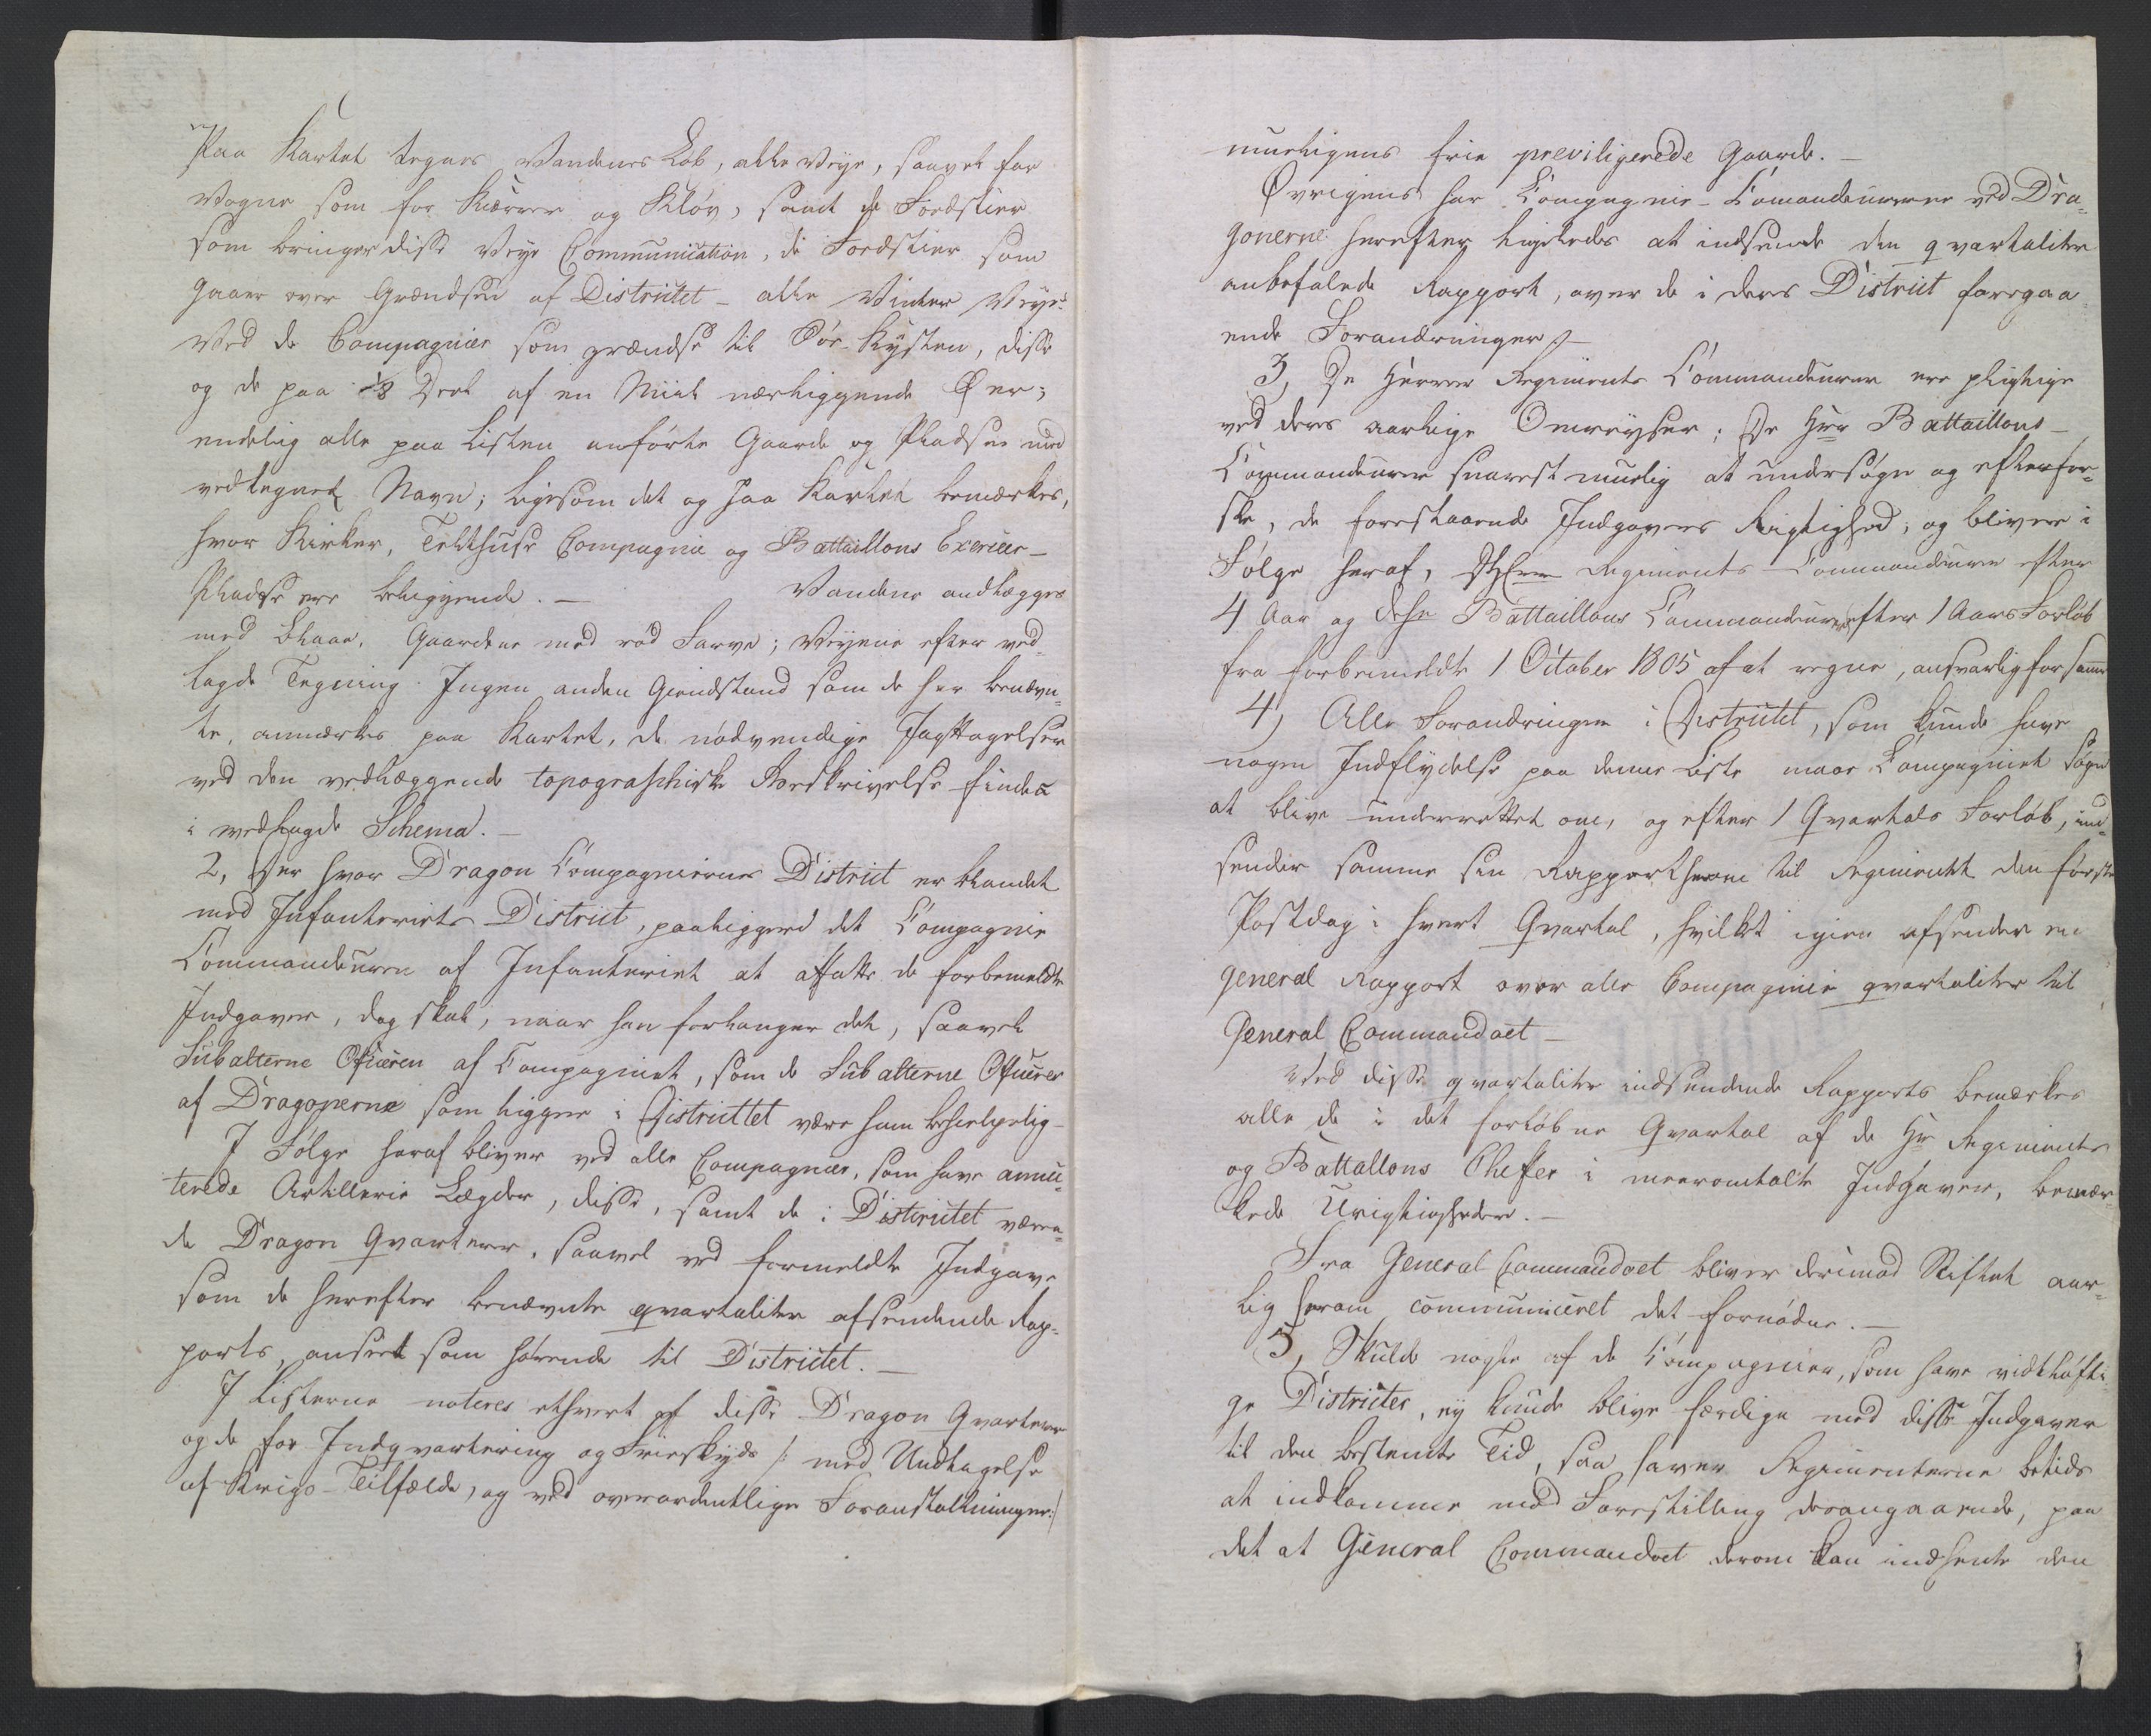 Paa Kartet tegnes Vandenes Løb, alle Veye, saavel for
Vogne som for Kiærrer og Kløv, samt de Foedstier
som bringer disse Veye Communication, de Foedstier som
gaaer over Grændsen af Districtet – alle Vinter Veye
Ved de Compagnier som grændse til Søe-Kysten, disse
og de paa 1/8 Deel af en Miil nærliggende Øer;
endelig alle paa Listen anførte Gaarde og Pladser med
vedtegnet Navn; ligesom det og paa Kartet bemærkes,
hvor Kirker, Telthuse Compagnie og Battaillons Exerceer-
Pladse ere beliggende. – Vandene andlægges
med Blaae, Gaardene med rød Farve; Veyene efter ved-
lagde Tegning. Ingen anden Giendstand som de her benævn-
te, anmærkes paa Kartet, de nødvendige Iagttagelser
ved den vedlæggende topographiske Beskrivelse findes
i vedlagde Schema. –
2, Der hvor Dragon Compagniernes District er blandet
med Infanteriets District, paaligger det Compagnie
Commandeuren af Infanteriet at affatte de forbemeldte
Indgaver, dog skal, naar han forlanger det, saavel
Subalterne Officeren af Compagniet, som de Subalterne Officerer
af Dragonerne som ligger i Districttet være ham behielpelig –
I Følge heraf bliver ved alle Compagnier, som have annec-
terede Artillerie Lægder, disse, samt de i Districtet væren-
de Dragon Qvarterer, saavel ved formeldte Indgave
som de herefter benævnte qvartaliter afsendende Rap-
ports, anseet som hørende til Districtet. –
I Listerne noteres ethvert af disse Dragon Qvarterer
og de for Indqvartering og Frieskyds /: med Undtagelse
af Krigs-Tilfælde, og ved overordentlige Foranstaltninger:/
mueligens frie previligerede Gaarde. –
Øvrigens har Compagnie-Comandeurerne ved Dra-
gonerne herefter ligeledes at indsende den qvartaliter
anbefalede Rapport, over de i deres District foregaa-
ende Forandringer –
3, De Herrer Regiments Commandeurer ere pligtige
ved deres aarlige Omreyser; De Hrr Battaillons-
Commandeurer snarest muelig at undersøge og efterfor-
ske, de forestaaende Indgavers Rigtighed, og blivere i
Følge heraf, Regiments-Commandeurer efter
4 Aar og Battaillons Commandeurer efter 1 Aars Forløb
fra forbemeldte 1 October 1805 af at regne, ansvarlig for samme
4, Alle Forandringer i Districtet, som kunde have
nogen Indflydelse paa denne Liste maae Compagniet søge
at blive underrettet om, og efter 1 Qvartals Forløb, ind-
sender samme sin Rapport herom til Regimentet den første
Postdag i hvert Qvartal, hvilket igien afsender en
general Rapport over alle Compagnier qvartaliter til
General Commandoet –
Ved disse qvartaliter indsendende Rapports bemærkes
alle de i det forløbne Qvartal af de Hr Regiments
og Battallons Cheffer i meeromtalte Indgaver, bemær-
kede Urigtigheder. –
Fra General Commandoet bliver derimod Stiftet aar-
lig herom communiceret det fornødne. –
5, Skulde nogle af de Compagnier, som have vidtløfti-
ge Districter, ey kunde blive færdige med disse Indgaver
til den bestemte Tid, saa haver Regimenterne betids
at indkomme med Forestilling desangaaende, paa
det at General Commandoet derom kan indhente den